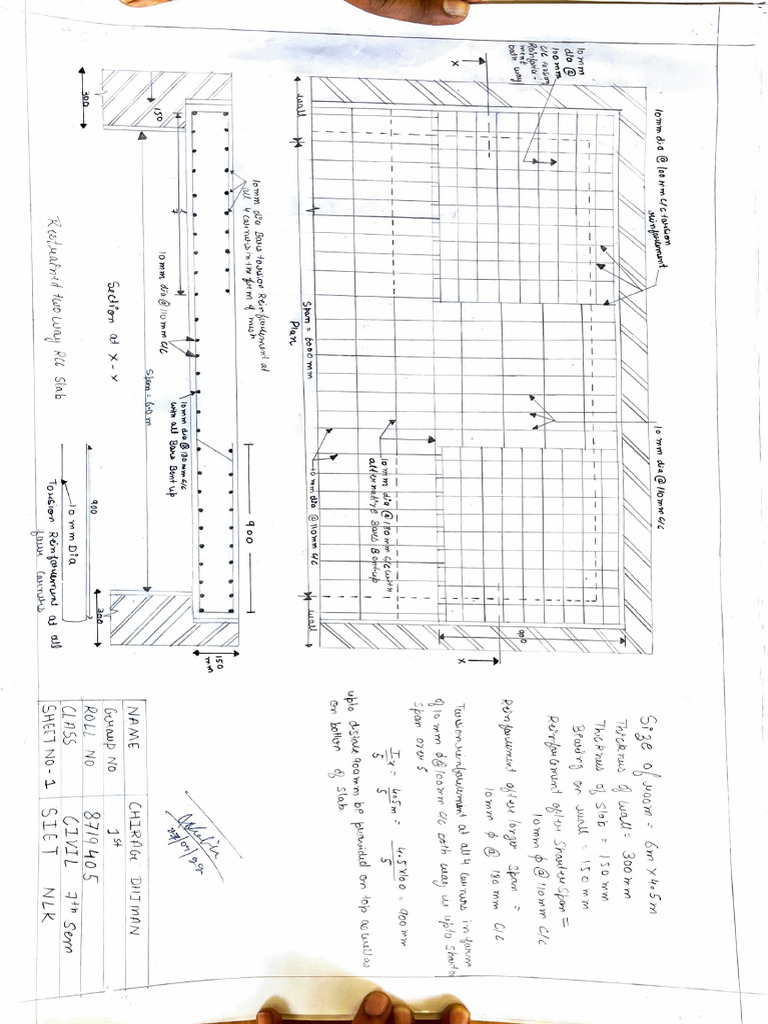 10mm
dia @
100mm
c/c torsion
Reinforce-
ment
both way
x
10mm dia @ 100mm c/c torsion
reinforcement
10 mm dia @ 110mm c/c
wall
Span = 6000 mm
Plan
10 mm dia @ 180 mm c/c with
alternative Bars Bentup
10 mm dia @ 110mm c/c
wall
900
x
10mm dia Bars torsion Reinforcement at
all 4 corners in the form of mesh
300
150
7
10mm dia @ 110mm c/c
10mm dia @ 180mm c/c
with all Bars Bent up
900
Span = 6.0 m
300
150
mm
Section at x-x
Restrained two way RCC Slab
900
10 mm Dia
Torsion Reinforcement at all
four corners
Size of room = 6m x 4.5m
Thicknes of wall = 300mm
Thicknes of slab = 150mm
Bearing on wall = 150mm
Reinforcement after Shorter Span =
10mm ϕ @ 110mm c/c
Reinforcement after longer Span =
10mm ϕ @ 180 mm c/c
Torsion reinforcement at all 4 corners in form
of 10mm ϕ @ 100mm c/c both way is upto shorter
span over 5
Ix/5 = 4.5m/5 = 4.5x100/5 = 900mm
upto distace 900mm be provided on top as well as
on bottom of slab
NAME CHIRAG DHIMAN
Group NO 1st
ROLL NO 8719405
CLASS CIVIL 7th Sem
SHEET NO-1 SIET NLK